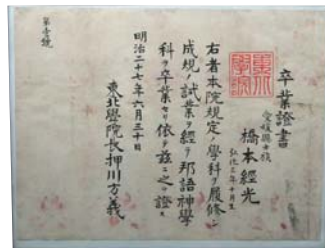 卒業證書
愛媛縣士族
橋本經光
弘化三年十月生
右者本院規定ノ學科ヲ履修シ
成規ノ試業ヲ經テ邦語神學
科ヲ卒業セリ依テ茲ニ之ヲ證ス
明治二十七年六月三十日
東北學院長押川方義
第壹號